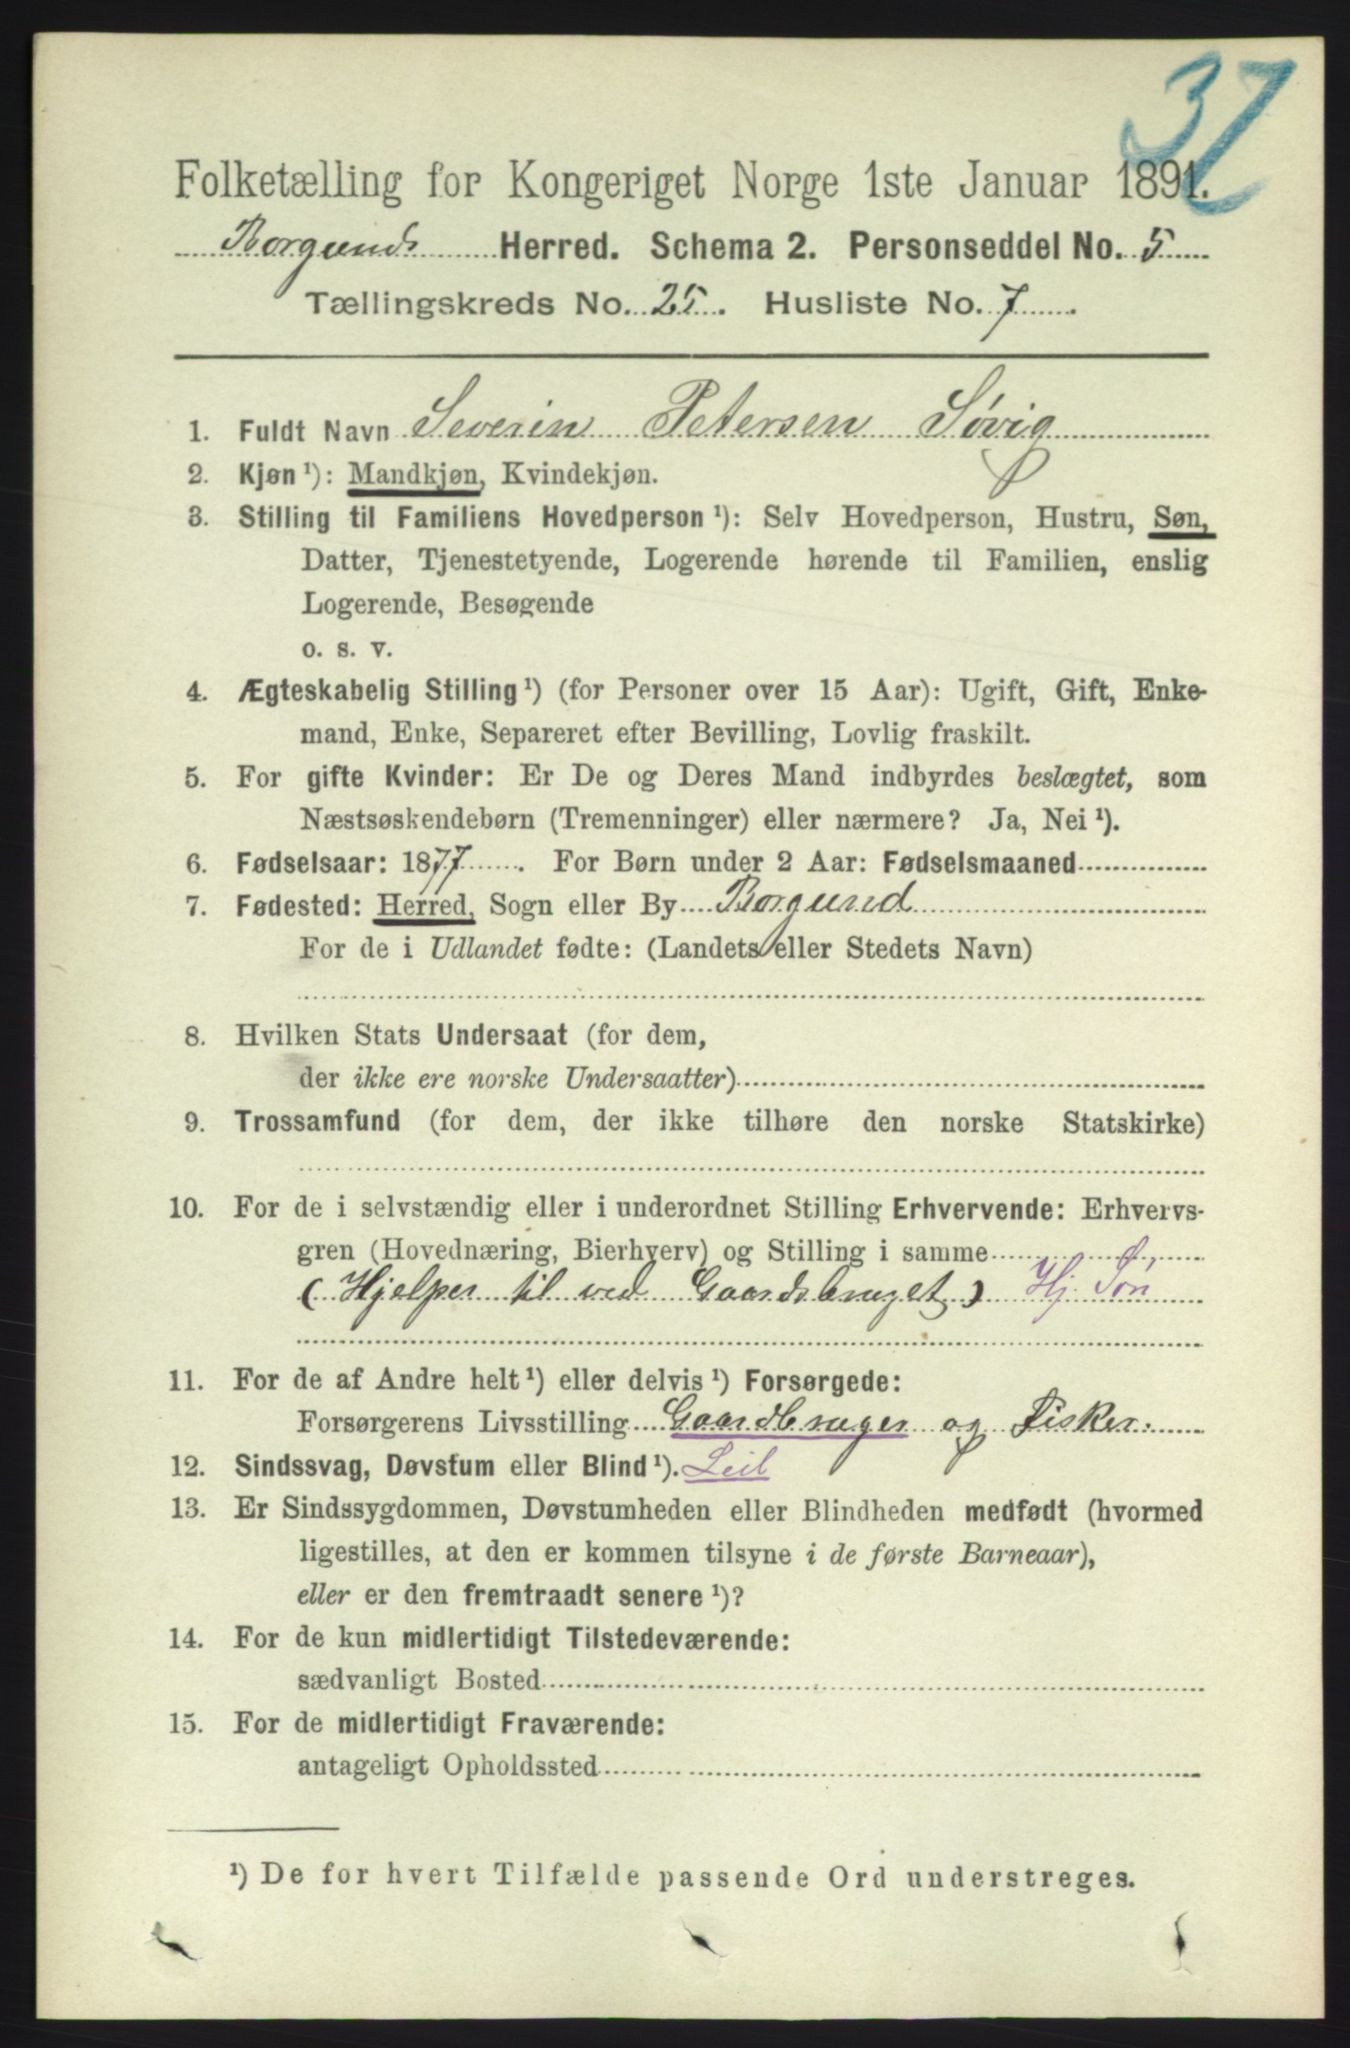 37
Folketælling for Kongeriget Norge 1ste Januar 1891.
Borgunds Herred. Schema 2. Personseddel No. 5
Tællingskreds No. 25. Husliste No. 7.
1. Fuldt Navn Severin Petersen Søvig
2. Kjøn ¹): Mandkjøn, Kvindekjøn.
3. Stilling til Familiens Hovedperson ¹): Selv Hovedperson, Hustru, Søn,
Datter, Tjenestetyende, Logerende hørende til Familien, enslig
Logerende, Besøgende
o. s. v.
4. Ægteskabelig Stilling ¹) (for Personer over 15 Aar): Ugift, Gift, Enke-
mand, Enke, Separeret efter Bevilling, Lovlig fraskilt.
5. For gifte Kvinder: Er De og Deres Mand indbyrdes beslægtet, som
Næstsøskendebørn (Tremenninger) eller nærmere? Ja, Nei ¹).
6. Fødselsaar: 1877. For Børn under 2 Aar: Fødselsmaaned
7. Fødested: Herred, Sogn eller By Borgund
For de i Udlandet fødte: (Landets eller Stedets Navn)
8. Hvilken Stats Undersaat (for dem,
der ikke ere norske Undersaatter)
9. Trossamfund (for dem, der ikke tilhøre den norske Statskirke)
10. For de i selvstændig eller i underordnet Stilling Erhvervende: Erhvervs-
gren (Hovednæring, Bierhverv) og Stilling i samme
(Hjelper til ved Gaardsbruget) Hj. Søn
11. For de af Andre helt ¹) eller delvis ¹) Forsørgede:
Forsørgerens Livsstilling Gaardbruger og Fisker.
12. Sindssvag, Døvstum eller Blind ¹). Leil
13. Er Sindssygdommen, Døvstumheden eller Blindheden medfødt (hvormed
ligestilles, at den er kommen tilsyne i de første Barneaar),
eller er den fremtraadt senere ¹)?
14. For de kun midlertidigt Tilstedeværende:
sædvanligt Bosted
15. For de midlertidigt Fraværende:
antageligt Opholdssted
¹) De for hvert Tilfælde passende Ord understreges.